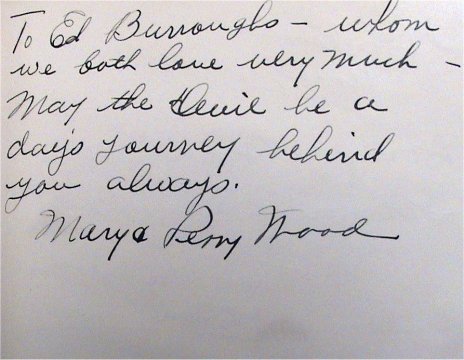 To Ed Burroughs – whom
we both love very much –
May the Devil be a
day's journey behind
you always.
Mary & Perry Wood